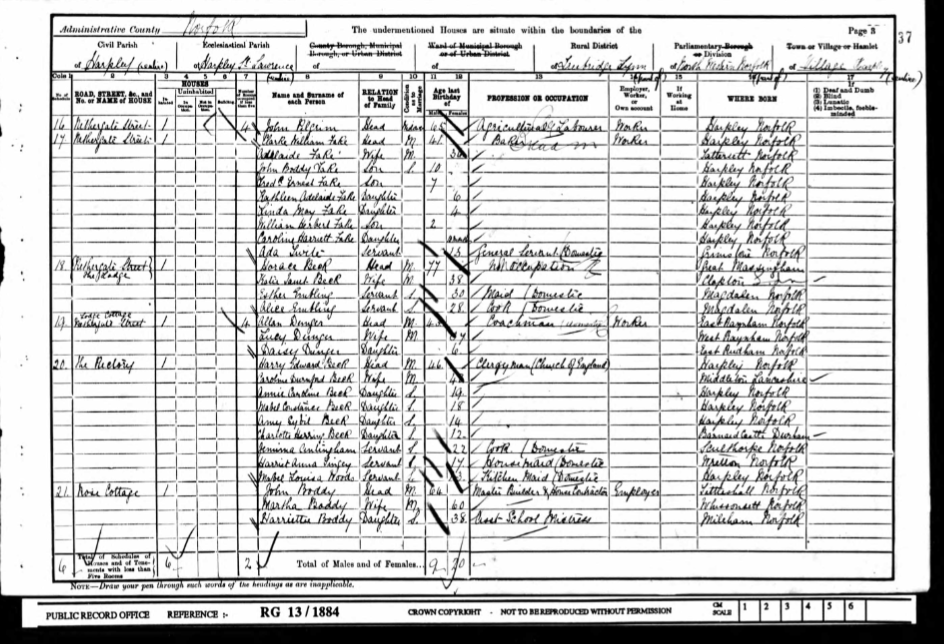 Administrative County Norfolk
The undermentioned Houses are situate within the boundaries of the
Page 3
37
Civil Parish
Ecclesiastical Parish
County Borough, Municipal Borough, or Urban District
Ward of Municipal Borough or of Urban District
Rural District
Parliamentary Borough or Division
Town or Village or Hamlet
of Harpley
of Harpley St. Lawrence
of
of
of Freebridge Lynn
of North Western Norfolk
of Village
ROAD, STREET, &c., and No. or NAME of HOUSE
HOUSES
Name and Surname of each Person
RELATION to Head of Family
Condition as to Marriage
Age last Birthday of
PROFESSION OR OCCUPATION
Employer, Worker, or Own account
If Working at Home
WHERE BORN
If (1) Deaf and Dumb (2) Blind (3) Lunatic (4) Imbecile, feeble-minded
16 Nethergate Street 1 4 John Pilgrim Head 65 Agricultural Labourer Worker Harpley Norfolk
17 Nethergate Street 1 Clarke William Lake Head M 41 Baker Worker Harpley Norfolk
Adelaide Lake Wife M Tattersett Norfolk
John Boddy Lake Son S 10 Harpley Norfolk
Fredc Ernest Lake Son 7 Harpley Norfolk
Kathleen Adelaide Lake Daughter 6 Harpley Norfolk
Linda May Lake Daughter 4 Harpley Norfolk
William Herbert Lake Son 2 Harpley Norfolk
Caroline Harriett Lake Daughter Harpley Norfolk
Ada Servant 15 General Servant (Domestic) Grimston Norfolk
18 Nethergate Street 1 Horace Beck Head M 77 No occupation Great Massingham
Wife M 38 Clapton
Esther Servant S 30 Maid (Domestic) Magdalen Norfolk
Alice Servant S 28 Cook (Domestic) Magdalen Norfolk
19 Lodge Cottage Nethergate Street 1 4 Allan Head M Coachman (Domestic) Worker East Raynham Norfolk
Lucy Wife M West Raynham Norfolk
Daisy Daughter 6 East Rudham Norfolk
20 The Rectory 1 Harry Edward Beck Head M 46 Clergyman (Church of England) Harpley Norfolk
Caroline Durnford Beck Wife M Middleton Lancashire
Annie Caroline Beck Daughter S 19 Harpley Norfolk
Mabel Constance Beck Daughter S 18 Harpley Norfolk
Amy Sybil Beck Daughter S 14 Harpley Norfolk
Charlotte Beck Daughter S 12 Barnard Castle Durham
Jemima Servant S 22 Cook (Domestic) Sculthorpe Norfolk
Harriet Anna Servant S 17 Housemaid (Domestic) Norfolk
Mabel Louisa Woods Servant S Kitchen Maid (Domestic) Harpley Norfolk
21 Rose Cottage 1 John Boddy Head M 64 Master Builder & House Contractor Employer Norfolk
Martha Boddy Wife M 60 Whissonsett Norfolk
Harriette Boddy Daughter S 38 Asst School Mistress Mileham Norfolk
6 Total of Schedules of Houses and of Tenements with less than Five Rooms 6 2 Total of Males and of Females... 9 20
NOTE—Draw your pen through such words of the headings as are inapplicable.
PUBLIC RECORD OFFICE REFERENCE :- RG 13/1884 CROWN COPYRIGHT - NOT TO BE REPRODUCED WITHOUT PERMISSION CM SCALE 1 2 3 4 5 6